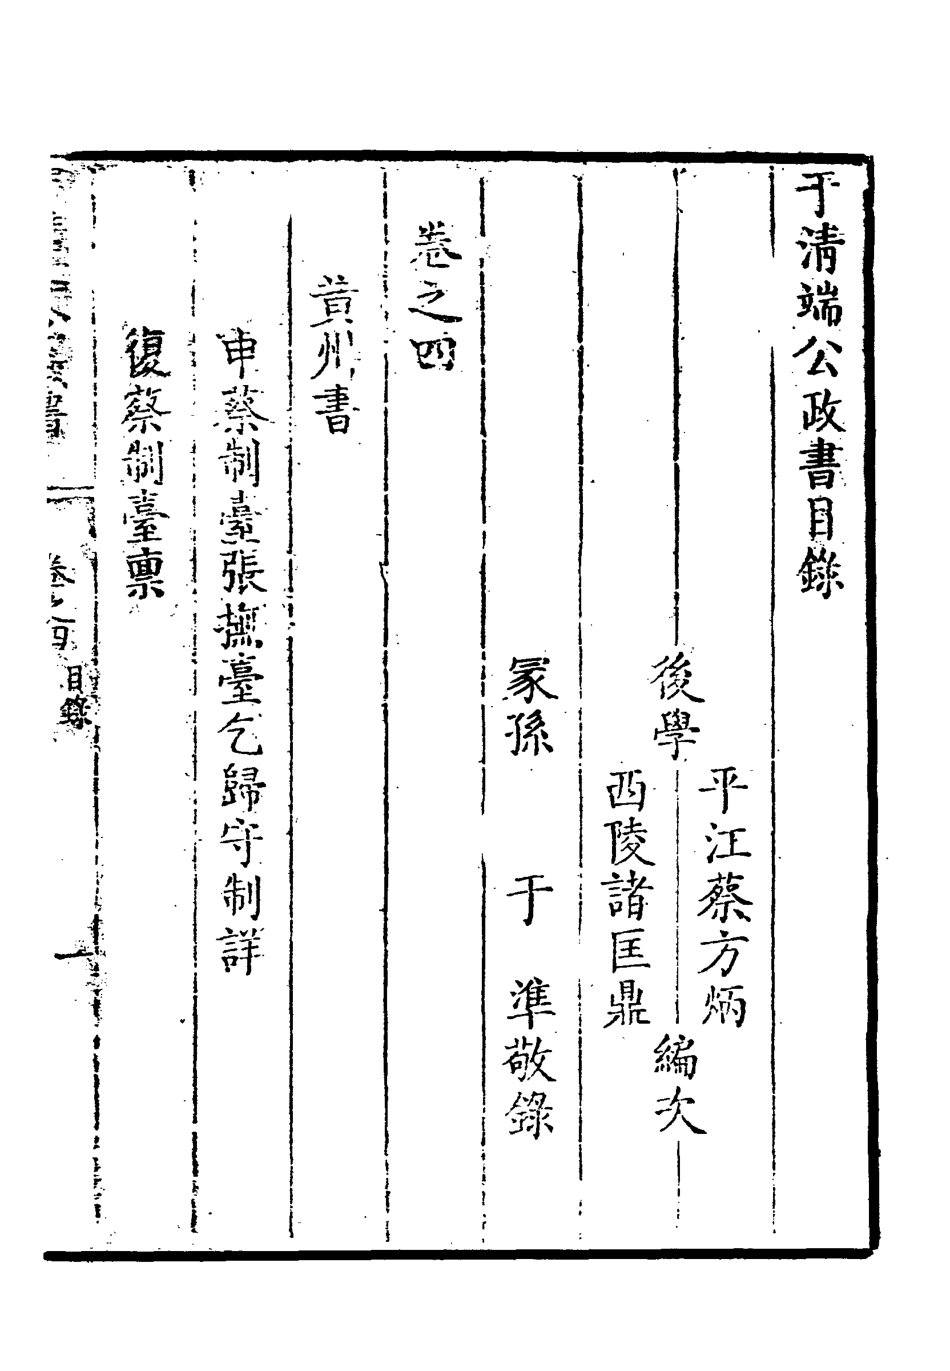 于清端公政書目錄
後學
平江蔡方炳
西陵諸匡鼎
編次
冢孫 于 準敬錄
卷之四
黃州書
申蔡制臺張撫臺乞歸守制詳
復蔡制臺稟
目錄
一